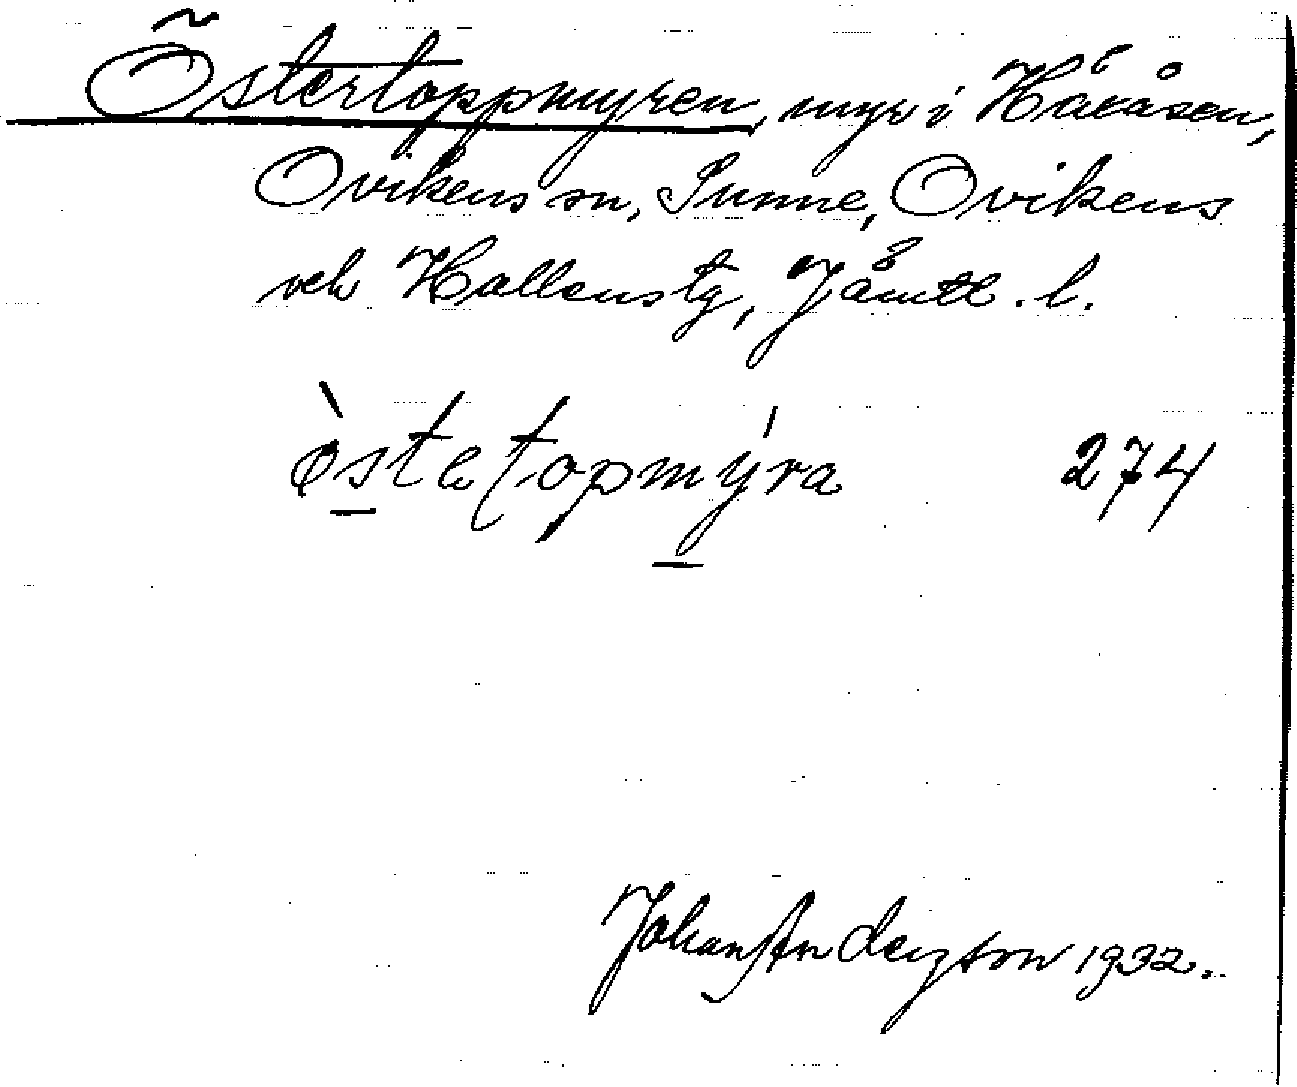 Östertoppmyren, myr i Håkåsen,
Ovikens sn, Sunne, Ovikens
och Hallens tg, Jämtl. l.
òstetopmýra 274
Johan Anderzson 1932.